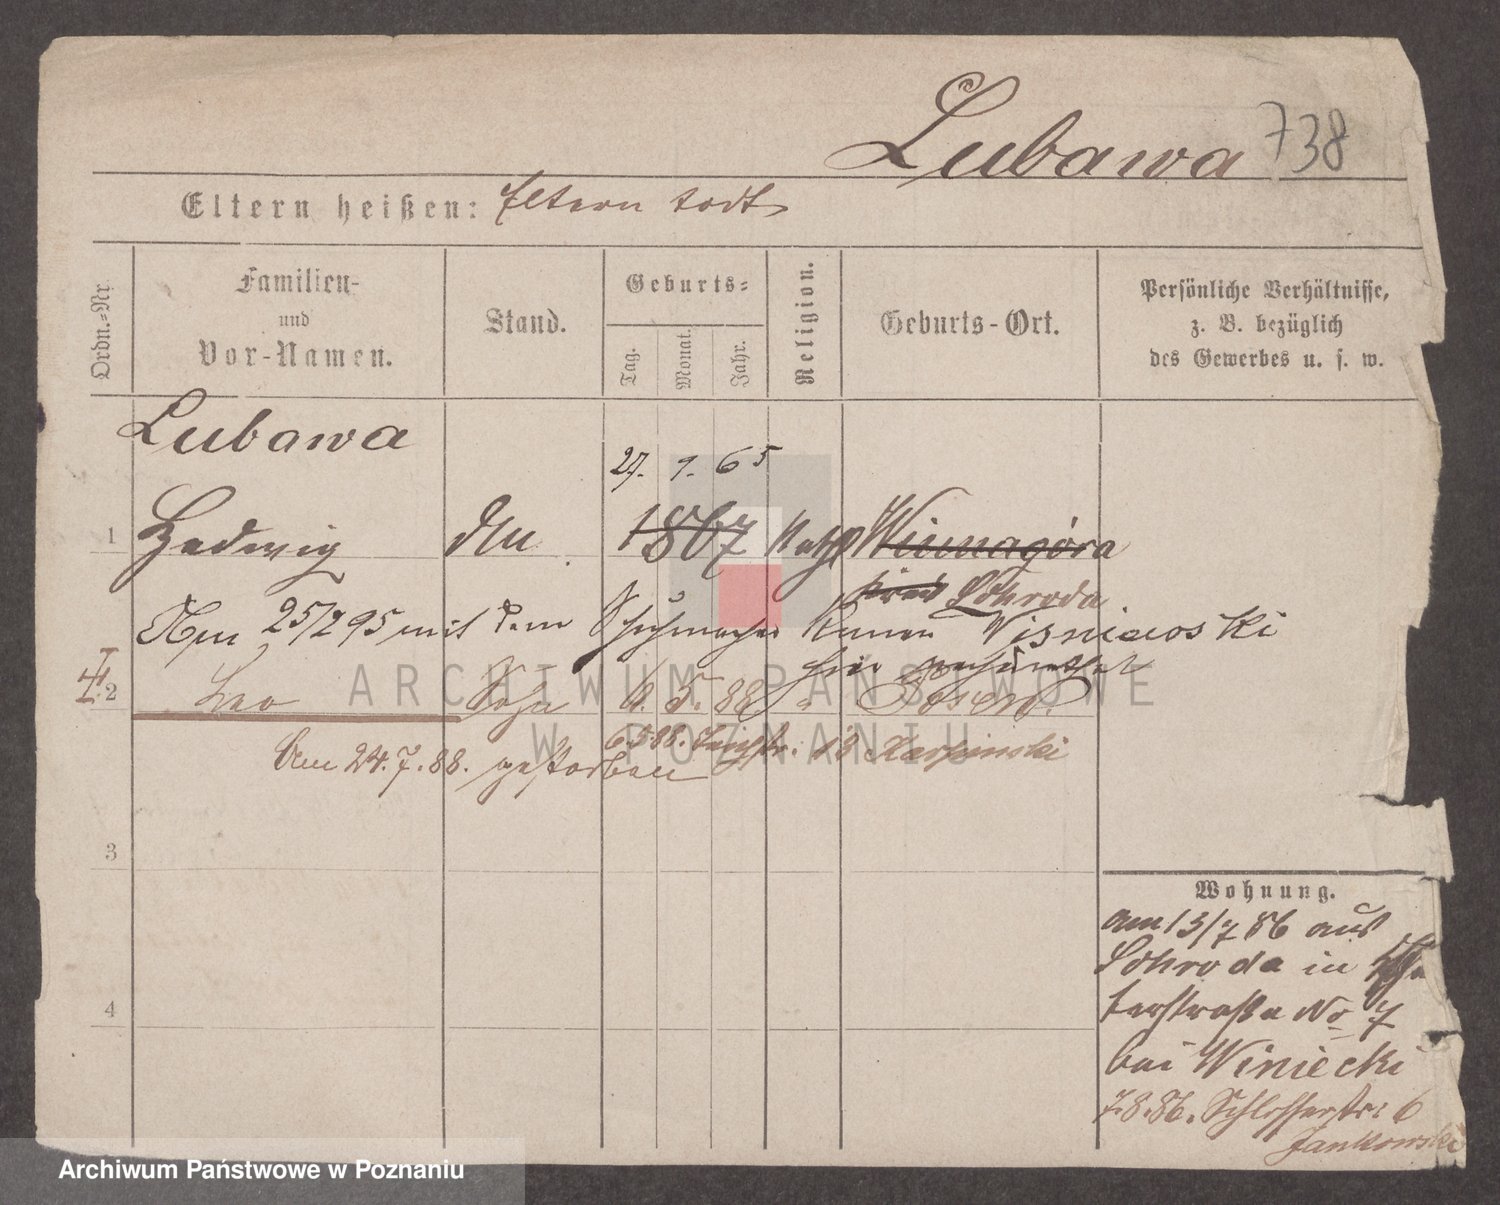 Lubawa 738
Eltern heißen: Eltern todt
Ordn.-Nr.
Familien-
und
Vor-Namen.
Stand.
Geburts-
Tag.
Monat.
Jahr.
Religion.
Geburts-Ort.
Persönliche Verhältnisse,
z. B. bezüglich
des Gewerbes u. s. w.
Lubawa
27. 9. 65
1 Hedwig 1867 Kath Winnagóra
Schroda
25/2 95 mit dem Schuhmacher Wisniewski
hier
2 Leo Sohn 6. 5. 88 " Posen.
6.5.88. 13 Karpinski
Am 24.7.88. gestorben
3
4
Wohnung.
am 13/7 86 aus
Schroda in
terstraße No 7
bei Winiecki
7.8.86. Schlosserstr: 6
Jankowski
ARCHIWUM PAŃSTWOWE
W POZNANIU
Archiwum Państwowe w Poznaniu